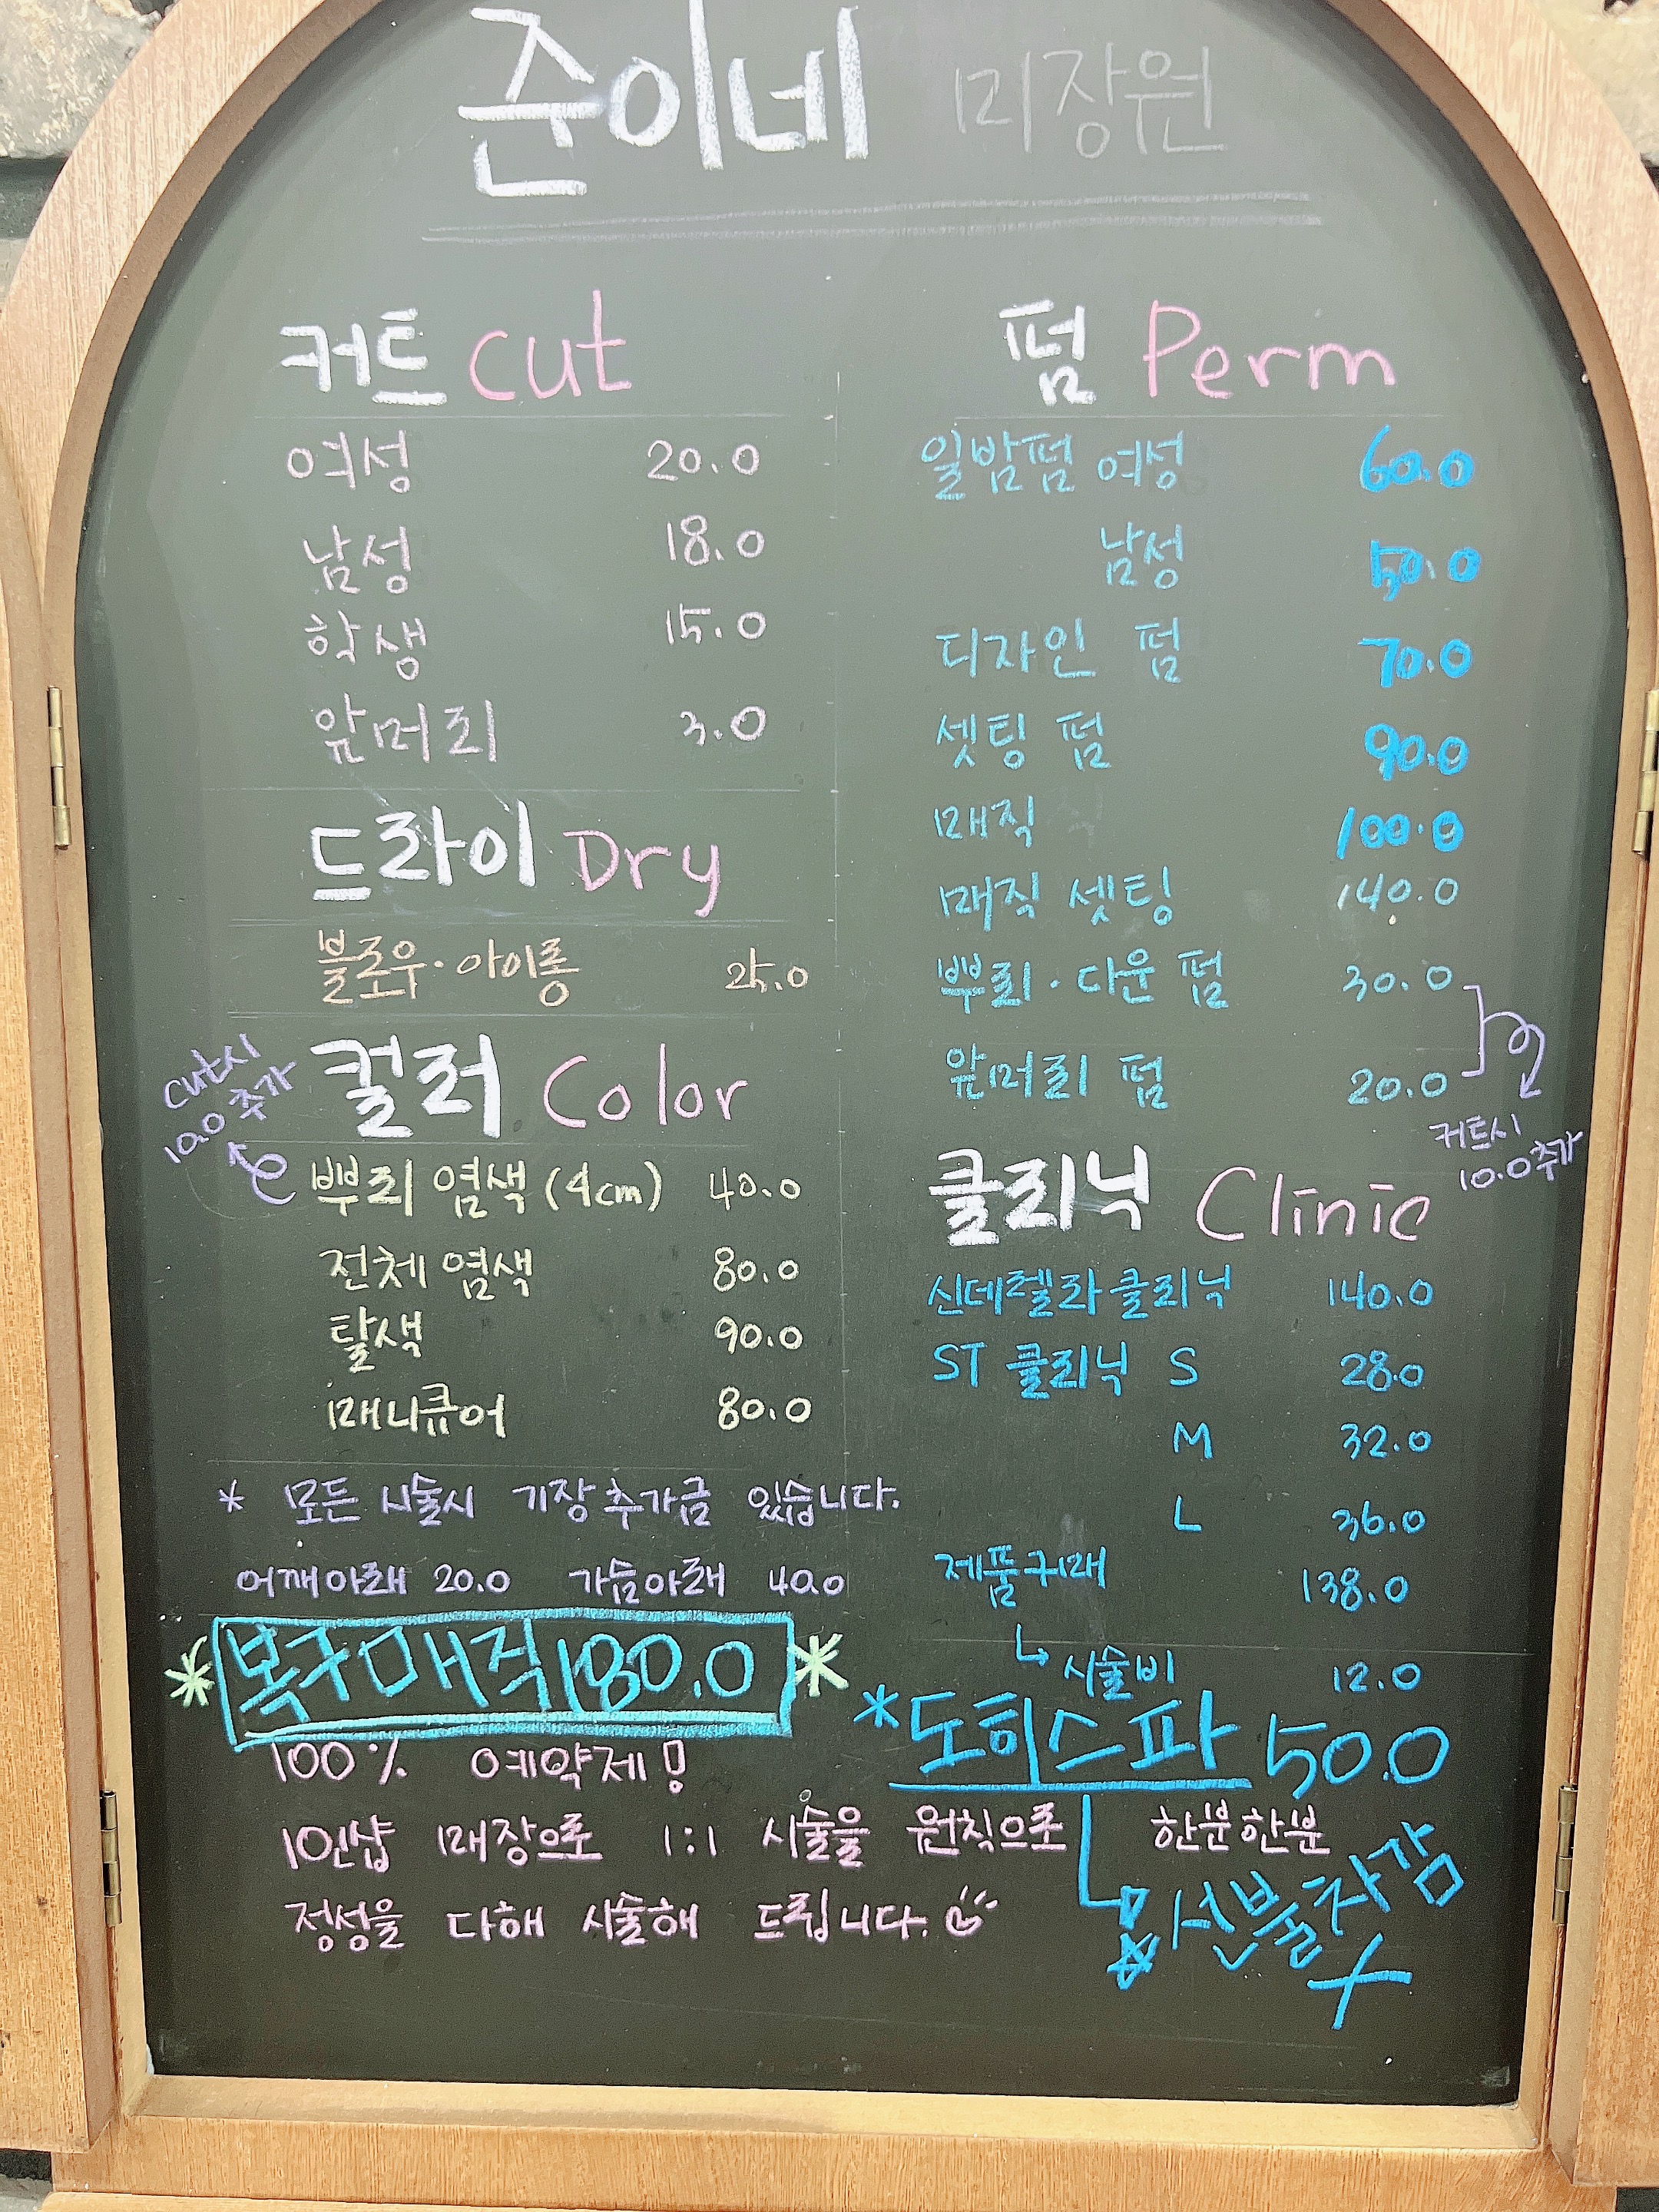 준이네 미장원
커트 cut
여성 20.0
남성 18.0
학생 15.0
앞머리 3.0
드라이 Dry
블로우·아이롱 25.0
cut시
10.0 추가
컬러 Color
뿌리 염색 (4cm) 40.0
전체 염색 80.0
탈색 90.0
매니큐어 80.0
* 모든 시술시 기장 추가금 있습니다.
어깨아래 20.0 가슴아래 40.0
* 복구매직 180.0 *
펌 Perm
일반펌 여성 60.0
남성 50.0
디자인 펌 70.0
셋팅 펌 90.0
매직 100.0
매직 셋팅 140.0
뿌리·다운 펌 30.0
앞머리 펌 20.0
커트시
10.0 추가
클리닉 Clinic
신데렐라 클리닉 140.0
ST 클리닉 S 28.0
M 32.0
L 36.0
제품구매 138.0
↳ 시술비 12.0
*도히스파 50.0
선불차감
X
100% 예약제!
10인샵 매장으로 1:1 시술을 원칙으로 한분한분
정성을 다해 시술해 드립니다.